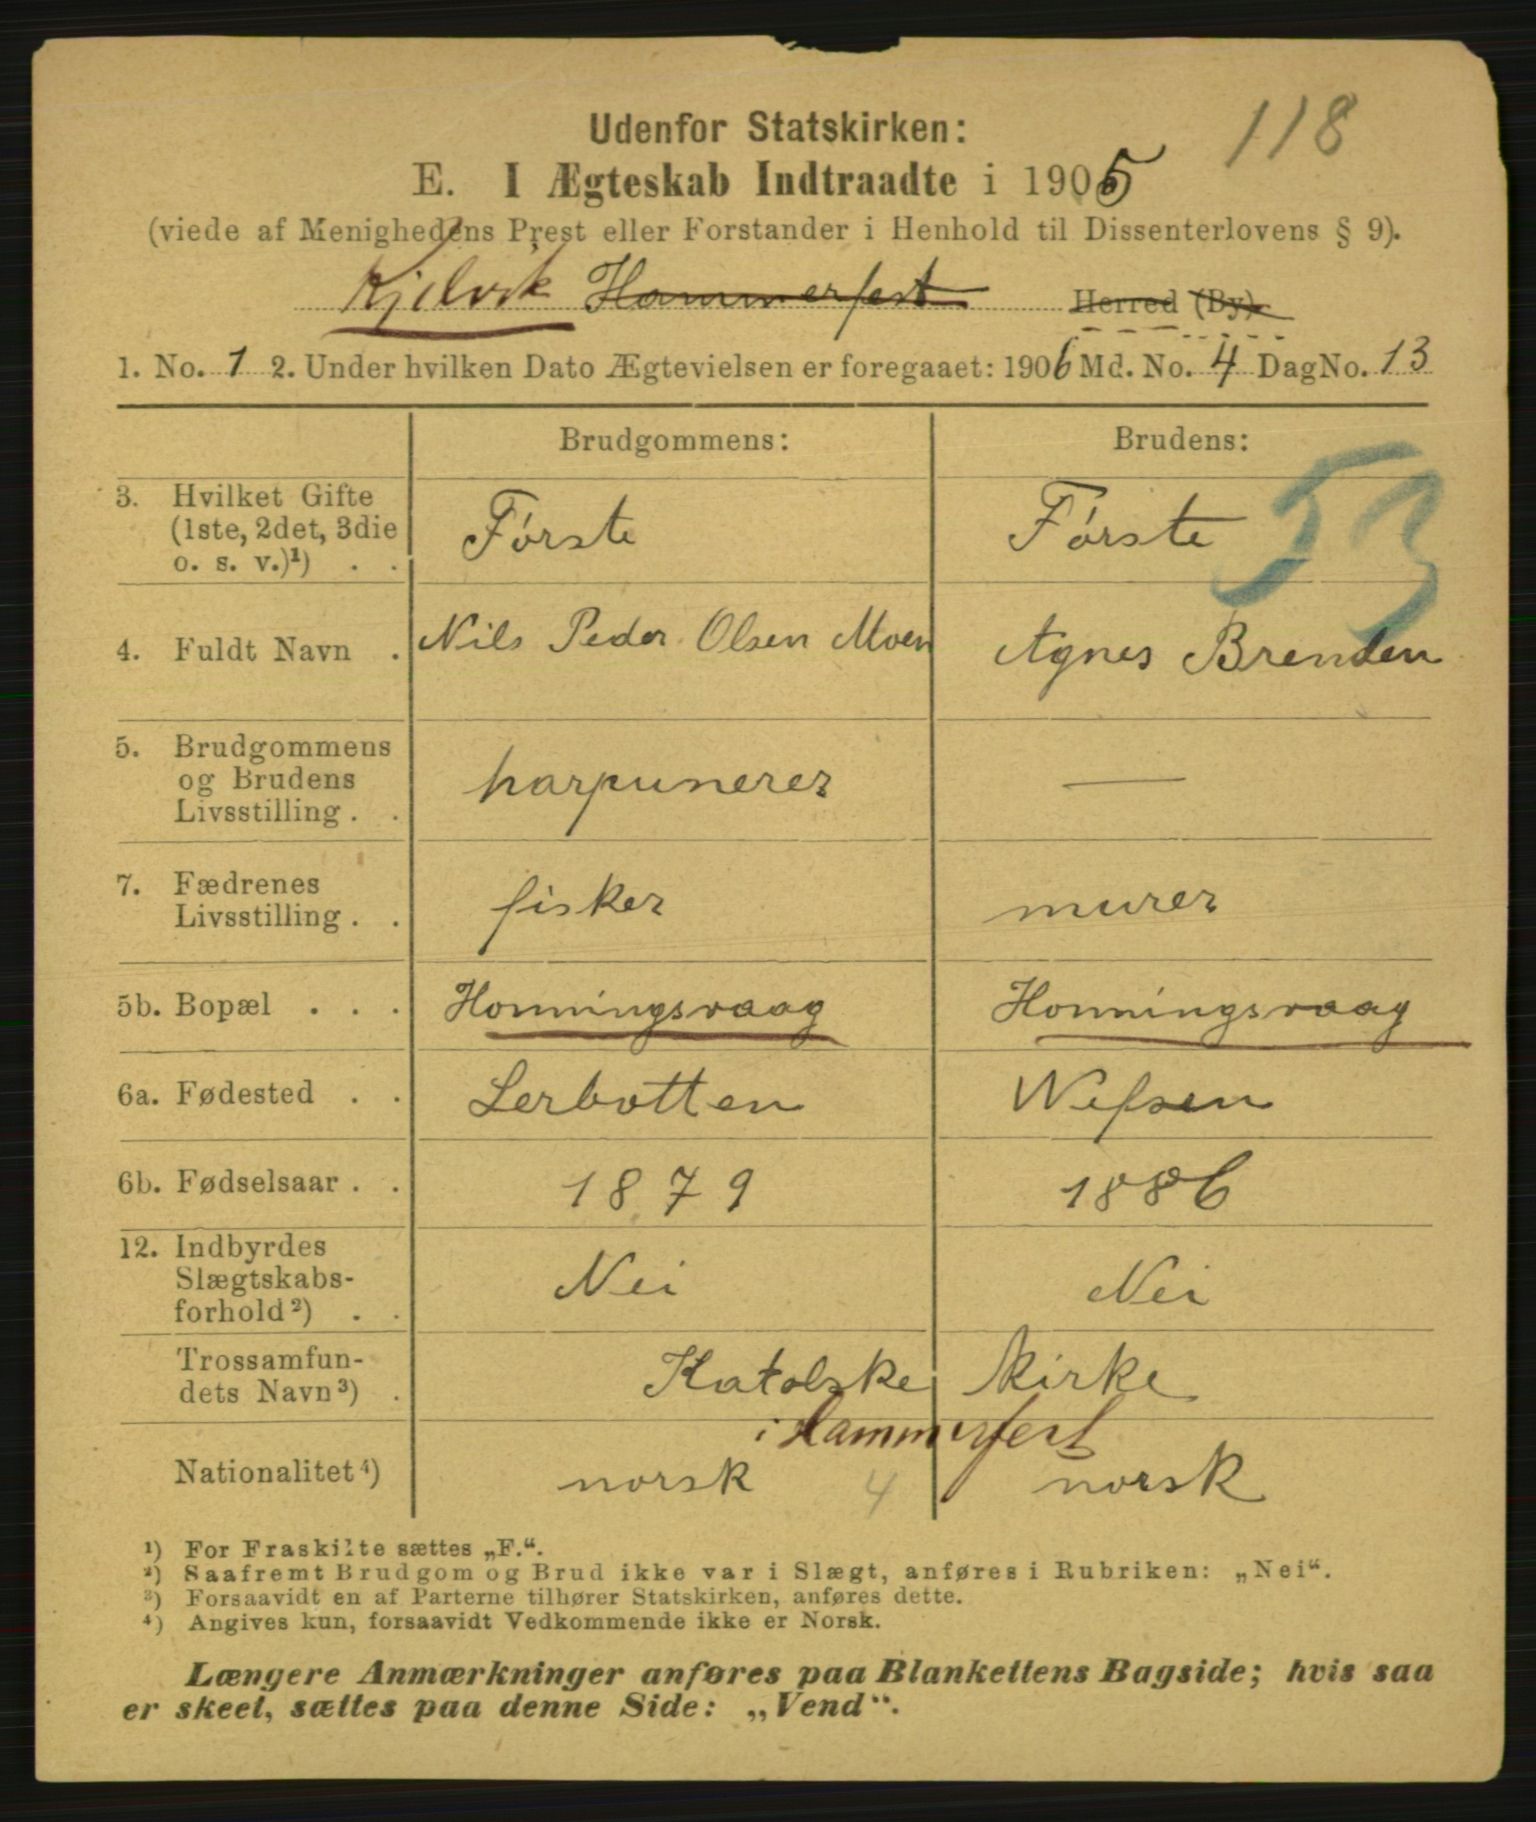 118
Udenfor Statskirken:
E. I Ægteskab Indtraadte i 1905
(viede af Menighedens Prest eller Forstander i Henhold til Dissenterlovens § 9).
Kjelvik Hammerfest Herred (By).
1. No. 1 2. Under hvilken Dato Ægtevielsen er foregaaet: 1906 Md. No. 4 Dag No. 13
Brudgommens: Brudens:
3. Hvilket Gifte
(1ste, 2det, 3die
o. s. v.)¹) . .
Første Første
53
4. Fuldt Navn . Nils Peder Olsen Moen Agnes Brenden
5. Brudgommens
og Brudens
Livsstilling . .
harpunerer —
7. Fædrenes
Livsstilling . .
fisker murer
5b. Bopæl . . . Honningsvaag Honningsvaag
6a. Fødested . . Lerbotten Vefsen
6b. Fødselsaar . . 1879 1886
12. Indbyrdes
Slægtskabs-
forhold²) . .
Nei Nei
Trossamfun-
dets Navn³) .
Katolske Kirke
i Hammerfest
Nationalitet⁴) norsk 4 norsk
¹) For Fraskilte sættes „F.“.
²) Saafremt Brudgom og Brud ikke var i Slægt, anføres i Rubriken: „Nei“.
³) Forsaavidt en af Parterne tilhører Statskirken, anføres dette.
⁴) Angives kun, forsaavidt Vedkommende ikke er Norsk.
Længere Anmærkninger anføres paa Blankettens Bagside; hvis saa
er skeet, sættes paa denne Side: „Vend“.